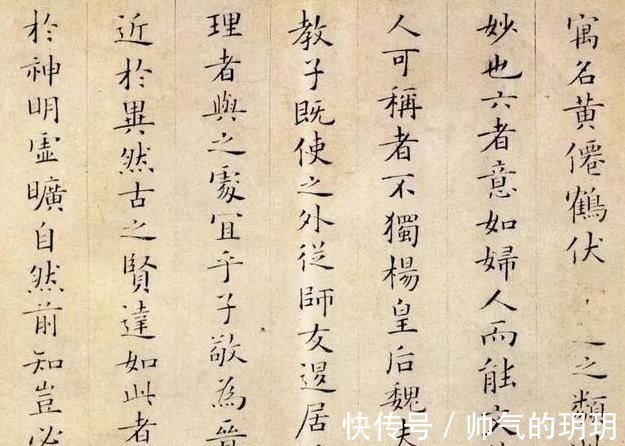 寓名黄僊鶴伏之類
妙也六者意如婦人而能文
人可稱者不獨楊皇后魏夫
教子既使之外從師友退居
理者與之處宜乎子敬為晉
近於異然古之賢達如此者
於神明虛曠自然前知豈必
快传号 / 帅气的玥玥